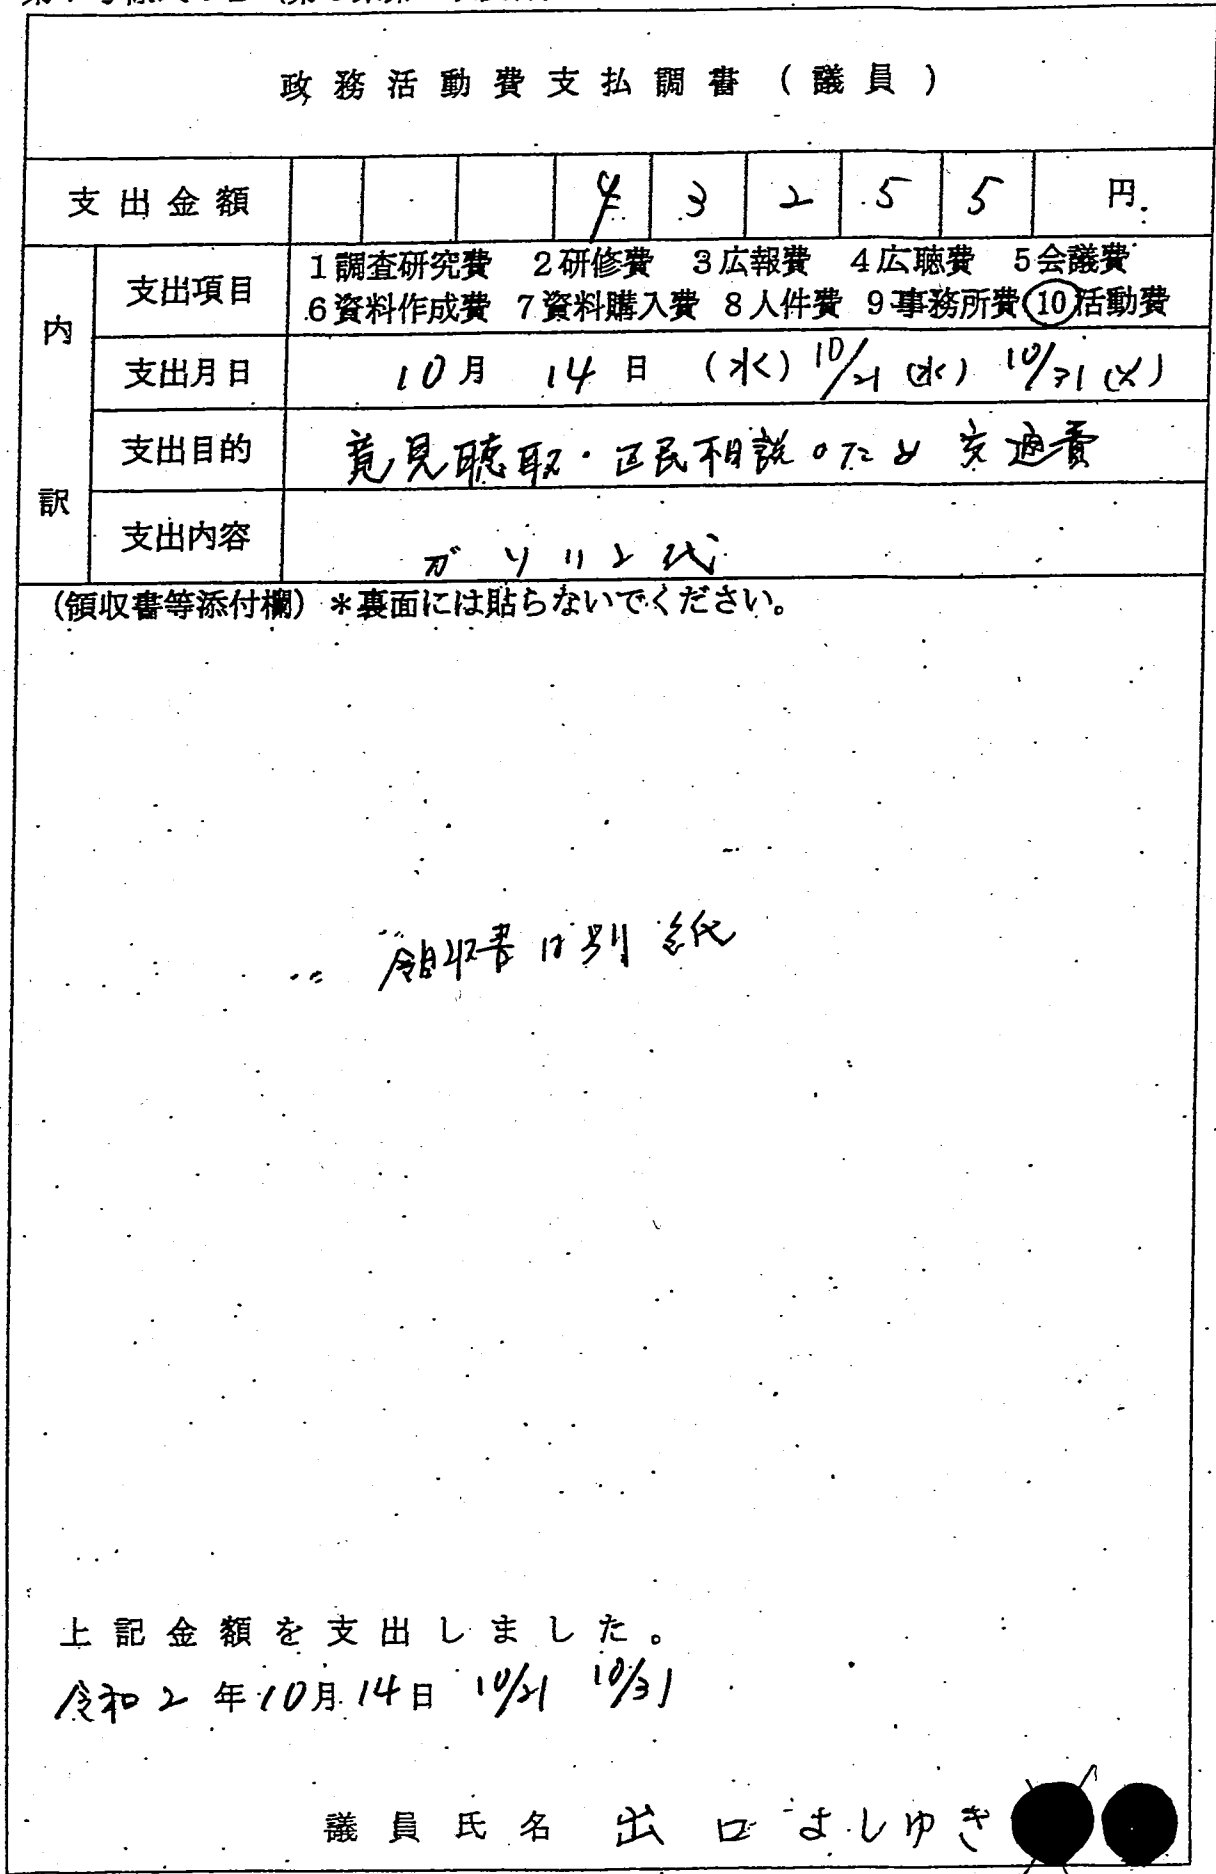 政務活動費支払調書(議員)
支出金額 4 3 2 5 5 円
内訳
支出項目 1調査研究費 2研修費 3広報費 4広聴費 5会議費
6資料作成費 7資料購入費 8人件費 9事務所費 10活動費
支出月日 10月 14日 (水) 10/21 (水) 10/31
支出目的 意見聴取・区民相談のため 交通費
支出内容 ガソリン代
(領収書等添付欄)*裏面には貼らないでください。
領収書は別紙
上記金額を支出しました。
令和2年10月14日 10/21 10/31
議員氏名 出口よしゆき